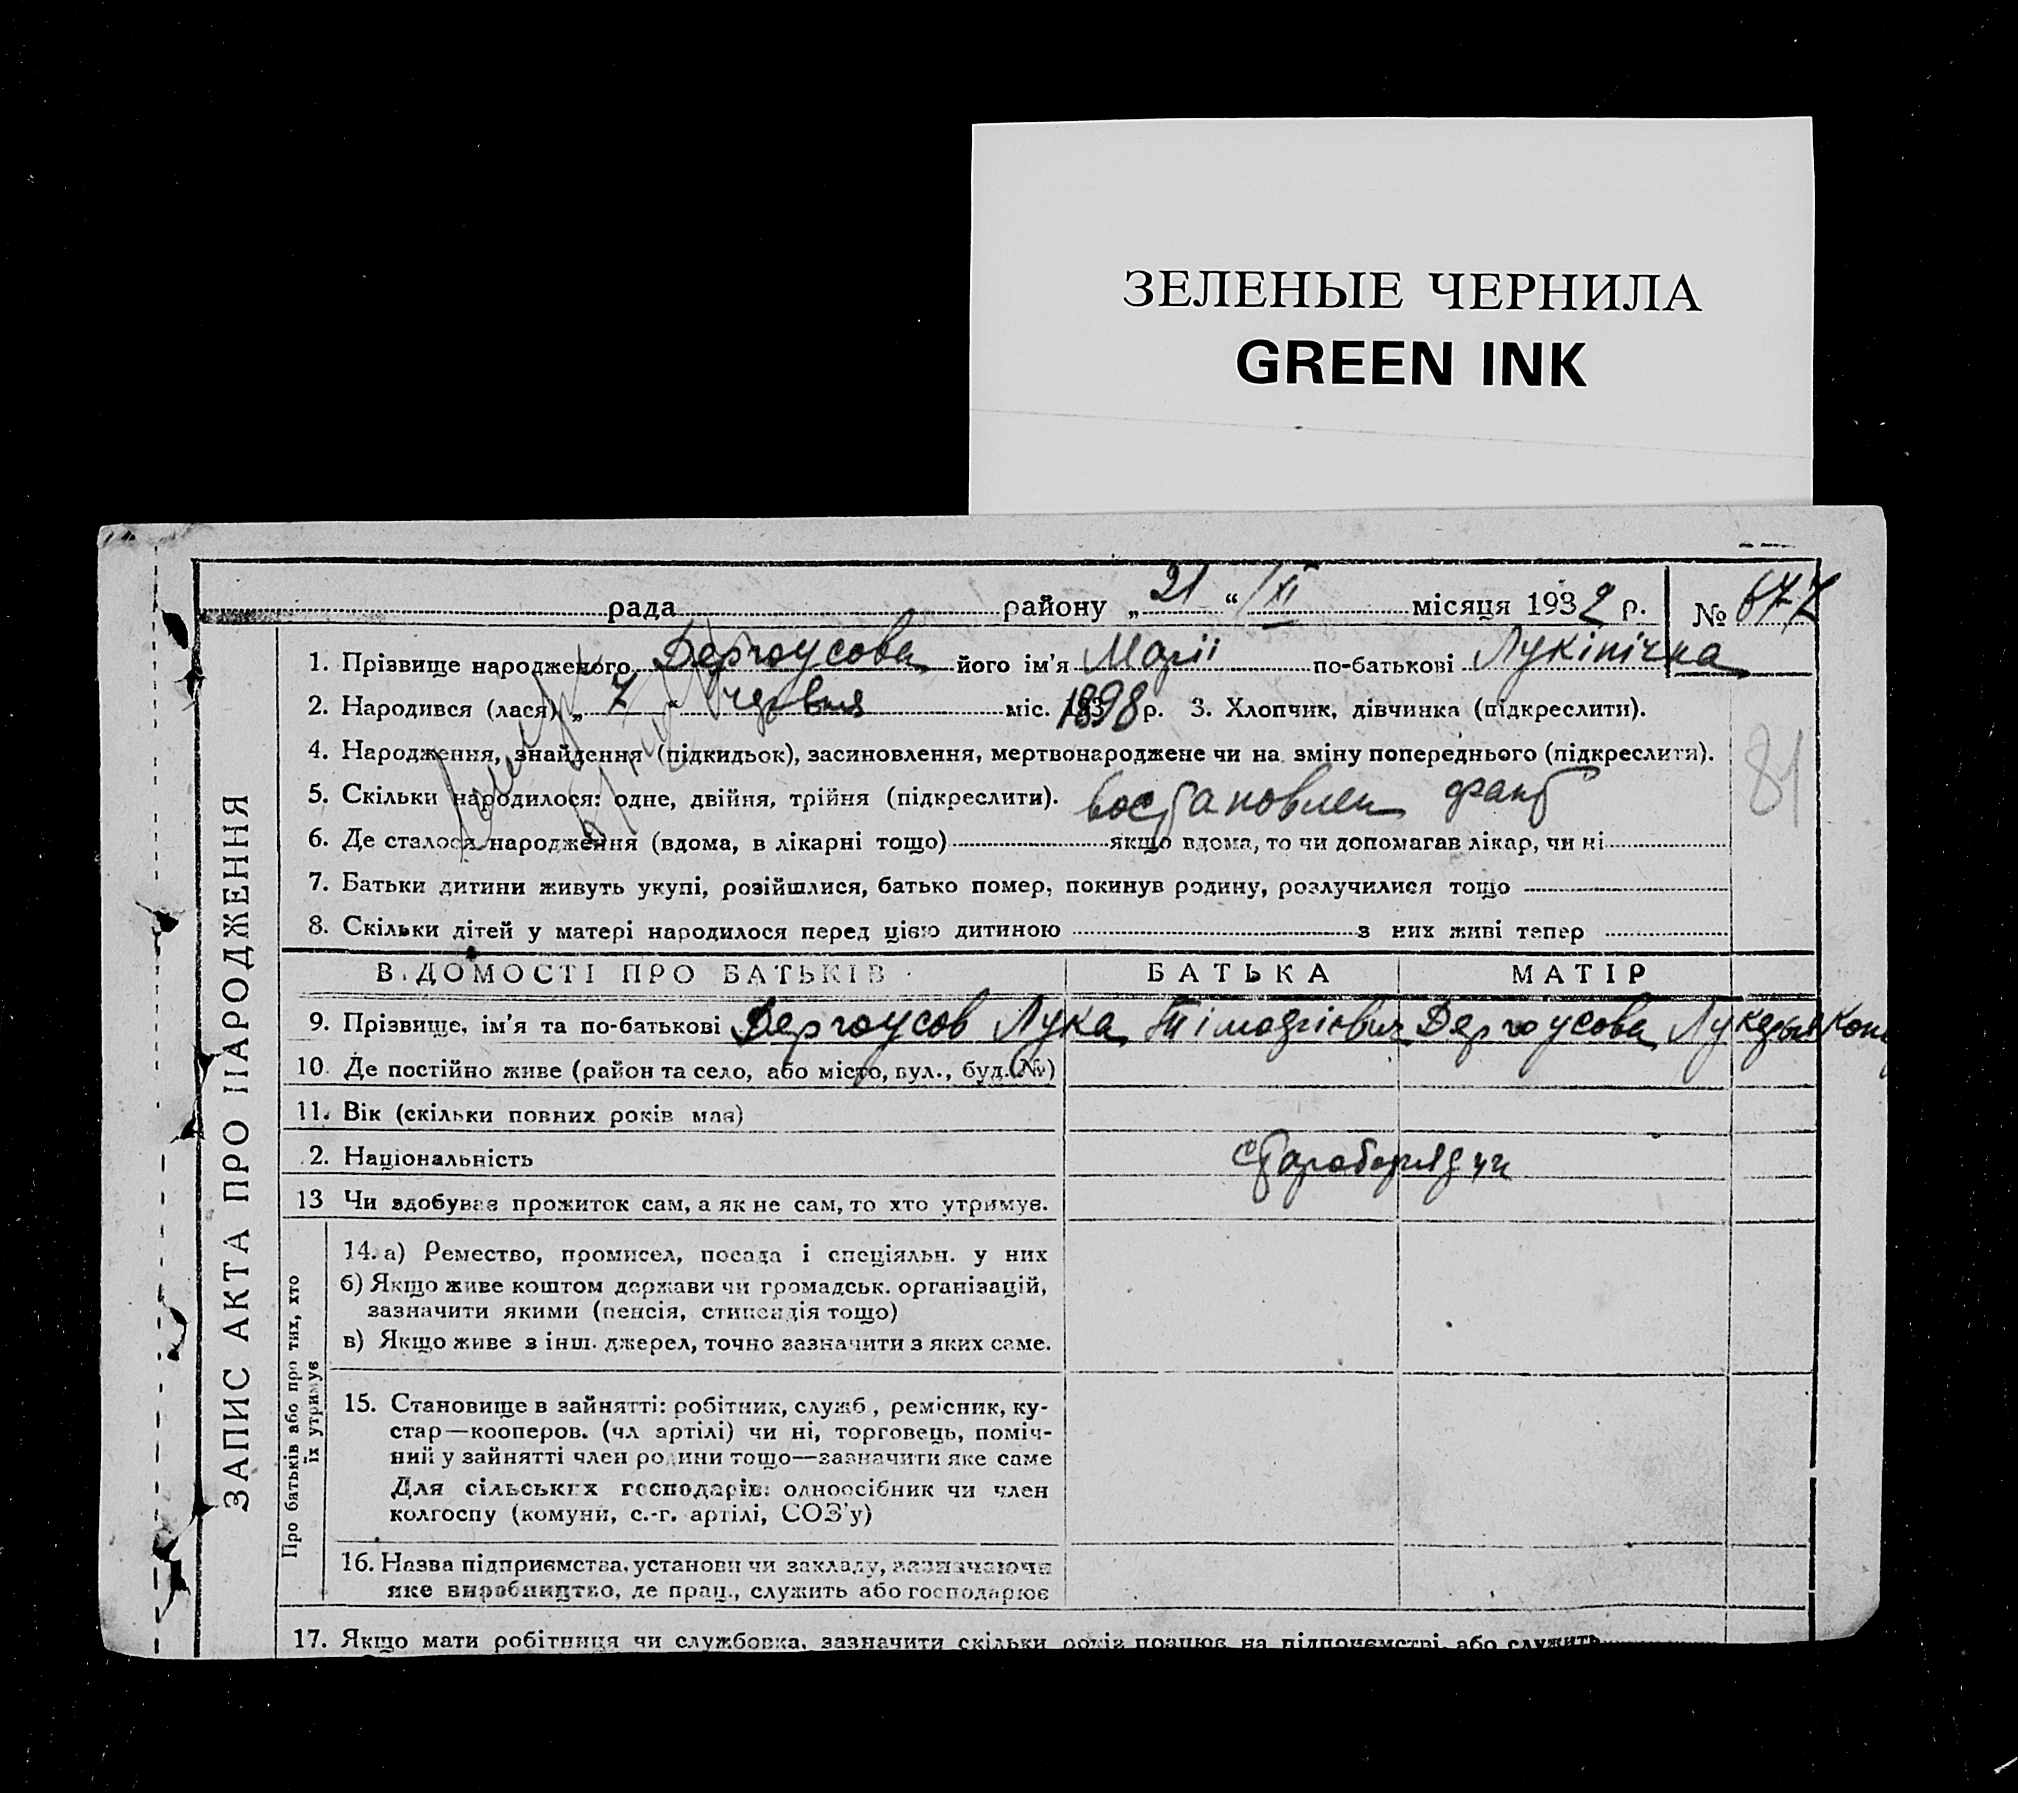 ЗЕЛЕНЫЕ ЧЕРНИЛА
GREEN INK
рада района району „21“ XI місяця 1932 р. № 677
1. Прізвище народженого Дергоусова його ім'я Марії по-батькові Лукінічна
2. Народився (лася) „7“ червня міс. 1898 р. 3. Хлопчик, дівчинка (підкреслити).
4. Народження, знайдення (підкидьок), засиновлення, мертвонароджене чи на зміну попереднього (підкреслити).
81
5. Скільки народилося: одне, двійня, трійня (підкреслити). востановлен факт
6. Де сталося народження (вдома, в лікарні тощо) якщо вдома, то чи допомагав лікар, чи ні
7. Батьки дитини живуть укупі, розійшлися, батько помер, покинув родину, розлучилися тощо
8. Скільки дітей у матері народилося перед цією дитиною з них живі тепер
ВІДОМОСТІ ПРО БАТЬКІВ БАТЬКА МАТІР
9. Прізвище, ім'я та по-батькові Дергоусов Лука Тімофієвич Дергоусова Лукерья
10. Де постійно живе (район та село, або місто, вул., буд. №)
11. Вік (скільки повних років має)
2. Національність старобрядчи
13 Чи здобуває прожиток сам, а як не сам, то хто утримує.
14. а) Ремество, промисел, посада і спеціяльн. у них
б) Якщо живе коштом держави чи громадськ. організацій,
зазначити якими (пенсія, стипендія тощо)
в) Якщо живе з інш. джерел, точно зазначити з яких саме.
15. Становище в зайнятті: робітник, служб., ремісник, ку-
стар—кооперов. (чл артілі) чи ні, торговець, поміч-
ний у зайнятті член родини тощо—зазначити яке саме
Для сільських господарів: одноосібник чи член
колгоспу (комуни, с.-г. артілі, СОЗ'у)
16. Назва підприємства, установи чи закладу, зазначаючи
яке виробництво, де прац., служить або господарює
17. Якщо мати робітниця чи службовка, зазначити скільки років працює на підприємстві або служить
ЗАПИС АКТА ПРО НАРОДЖЕННЯ
Про батьків або про тих, хто
їх утримує